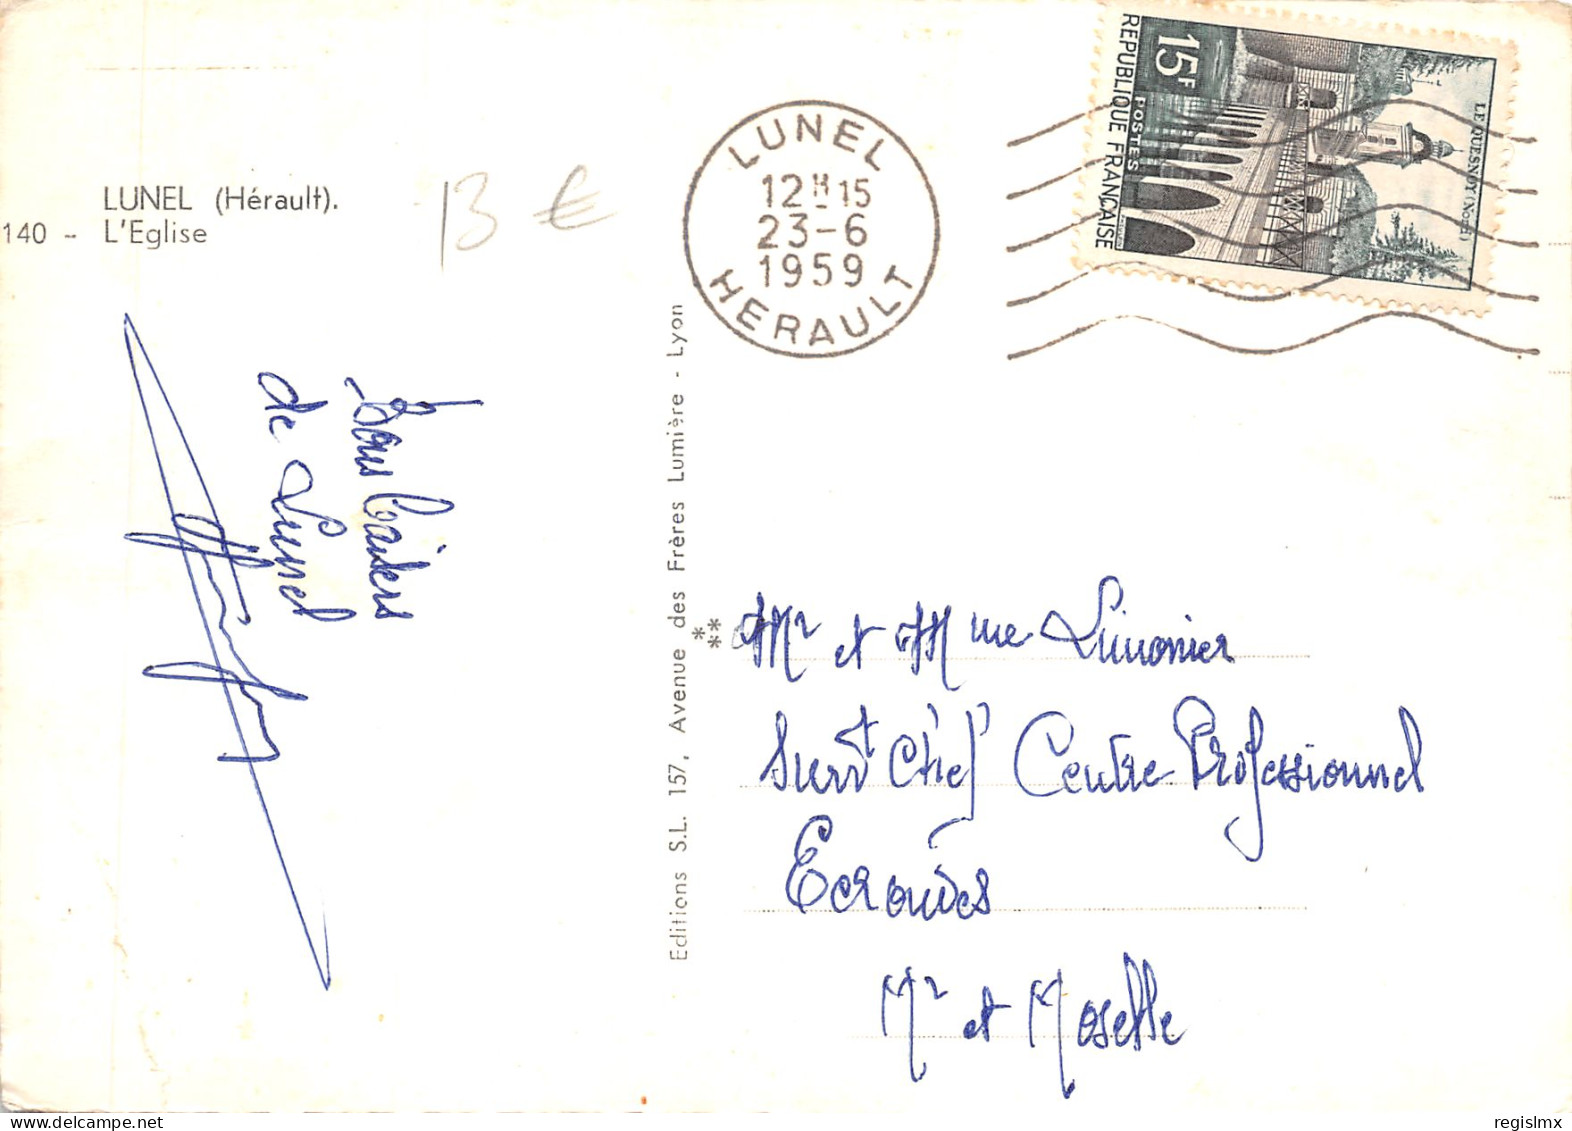 LUNEL (Hérault).
140 - L'Eglise
13 €
LUNEL
12H15
23-6
1959
HERAULT
REPUBLIQUE FRANÇAISE
15F
POSTES
LE QUESNOY (Nord)
Bons Baisers
de Lunel
Editions S.L. 157, Avenue des Frères Lumière - Lyon
***
Mr et Mme Limonier
Survt Chef Centre Professionnel
Ecrouves
Mr et Moselle
regislmx